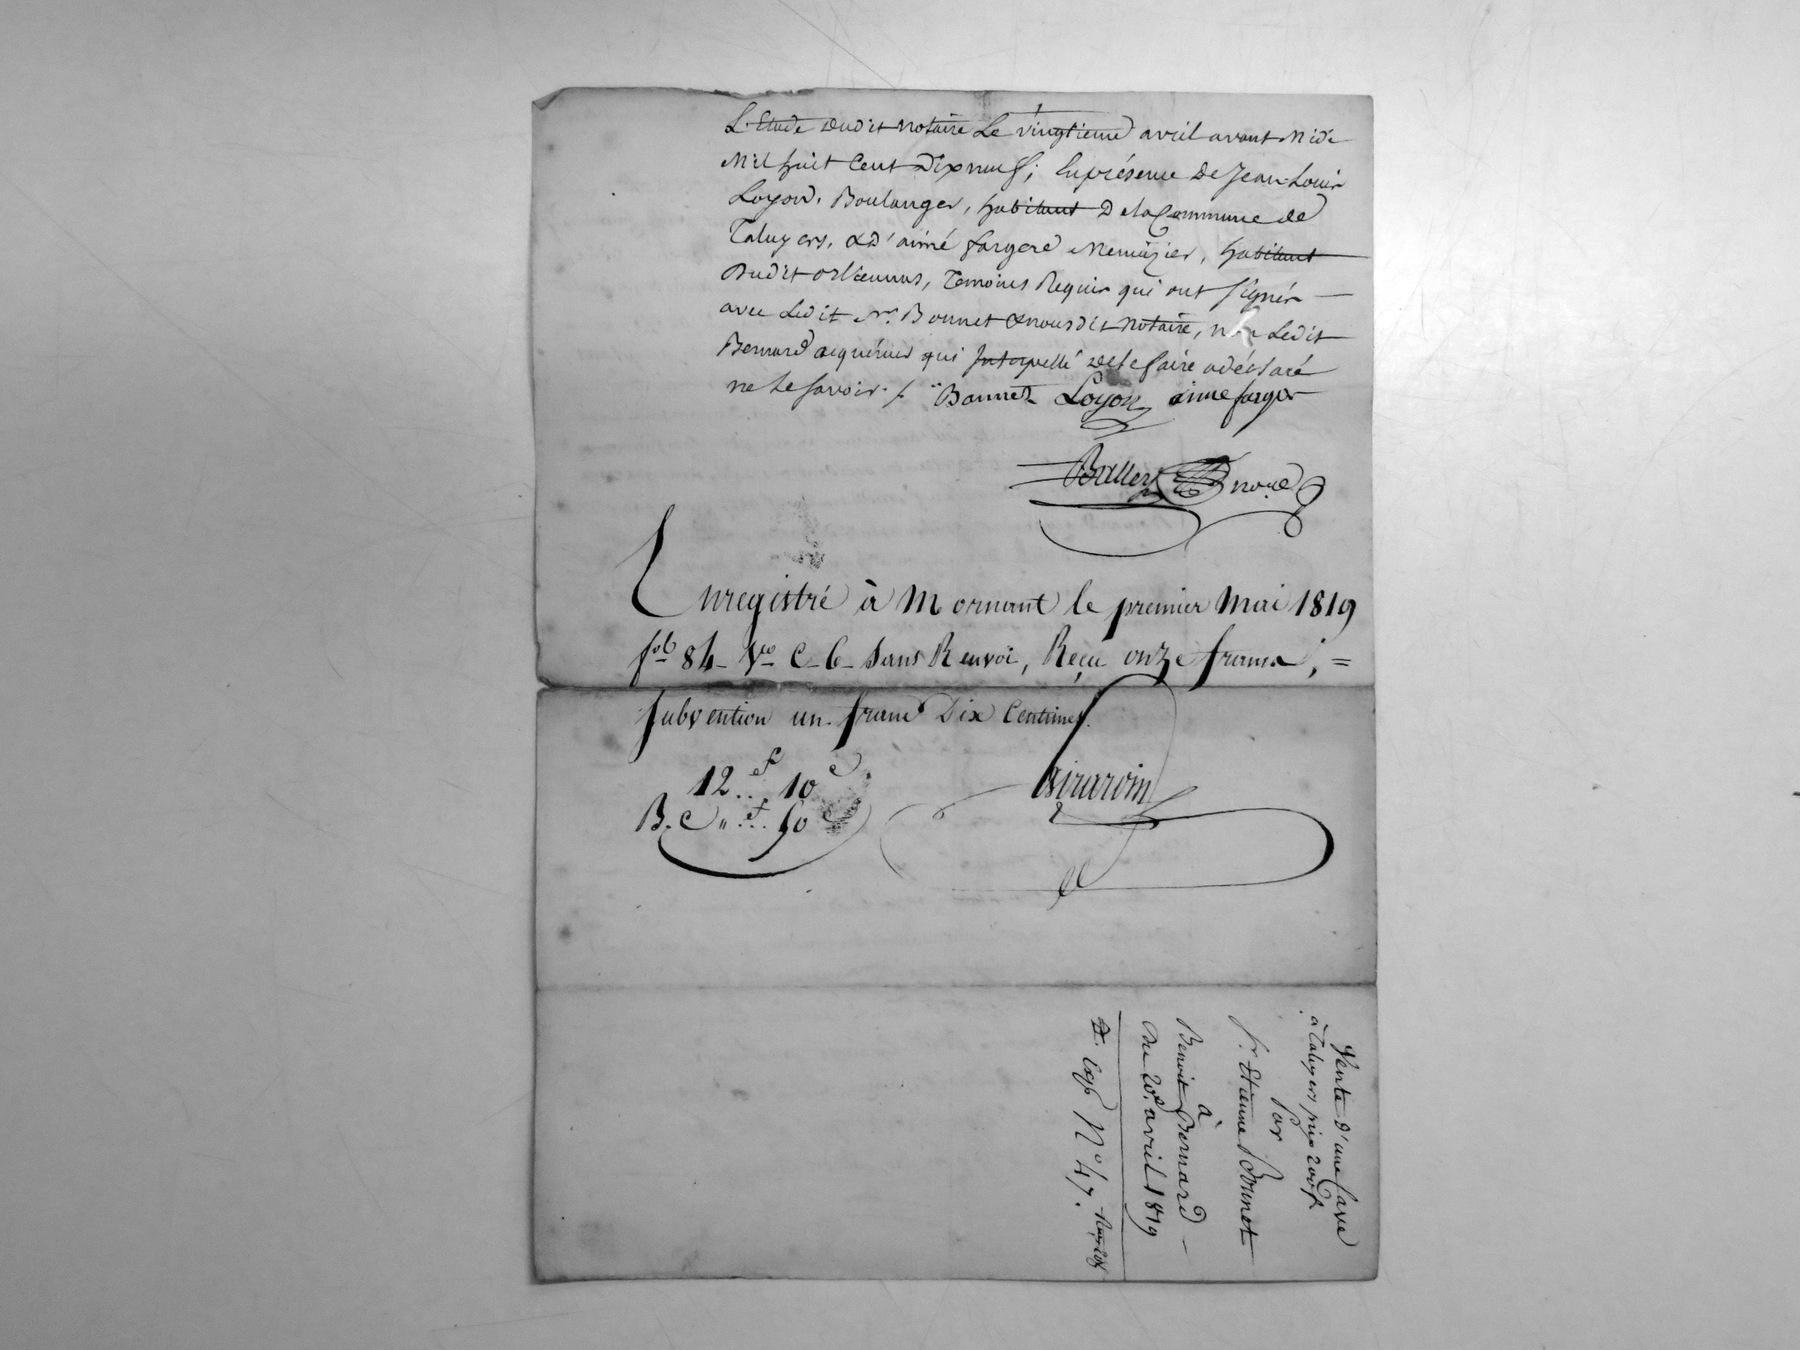 L'Etude dudit notaire Le vingtieme avril avant Midi
Mil huit Cent Dixneuf; En présence De Jean-Louis
Loyon, Boulanger, habitant De la Commune de
Taluyers, & D'aimé fargere Menuizier, habitant
Dudit orlienas, Temoins Requis qui ont signés
avec Ledit Sr. Bonnet & nousdit notaire, non Ledit
Bernard acquéreur qui Interpellé de le faire a déclaré
ne le savoir ./. Bonnet Loyon aime farger
nore
Enregistré à Mornant le premier Mai 1819
fol 84 Vo C. 6 Sans Renvoi, Reçu onze francs, =
Subvention un franc Dix Centimes.
12 f 10 c
B. C " f 50 c
Girardin
Vente D'une Cave
à Taluyers prix 200 f
Par
Sr. Etienne Bonnet
à
Benoit Bernard
Du 20e avril 1819
No 47.